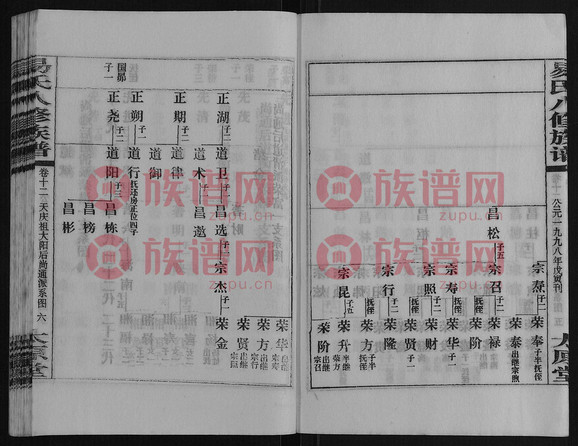 易氏八修族谱
公元一九九八年戊寅刊
太原堂
昌松 子五
宗寿 子二
宗召 子二
宗寿 抚侄 子一
宗照 子二
宗行 子二
宗昆 子五
荣奉 子半 抚侄
荣泰 出继 宗煦
荣禄
荣阶
荣华 子一
荣财
荣方 子半 抚侄
荣贤 子一
荣隆
荣升 子半继 荣方
荣阶 出继 宗召
族谱网
zupu.cn
易氏八修族谱
卷十二 天庆祖大阳后尚通派系图 六
太原堂
国郧 子一
正湖 子二
正期 子二
正朔 子一
正尧 子二
道卫 子二
道术
道律
道御
道行 抚廷房正位四子
道阳 子三
昌选 子一
昌遨
昌栋
昌榜
昌彬
宗杰 子一
荣华 出继 宗寿
荣方 出继 宗行
荣贤 出继 宗昆
荣金
族谱网
zupu.cn